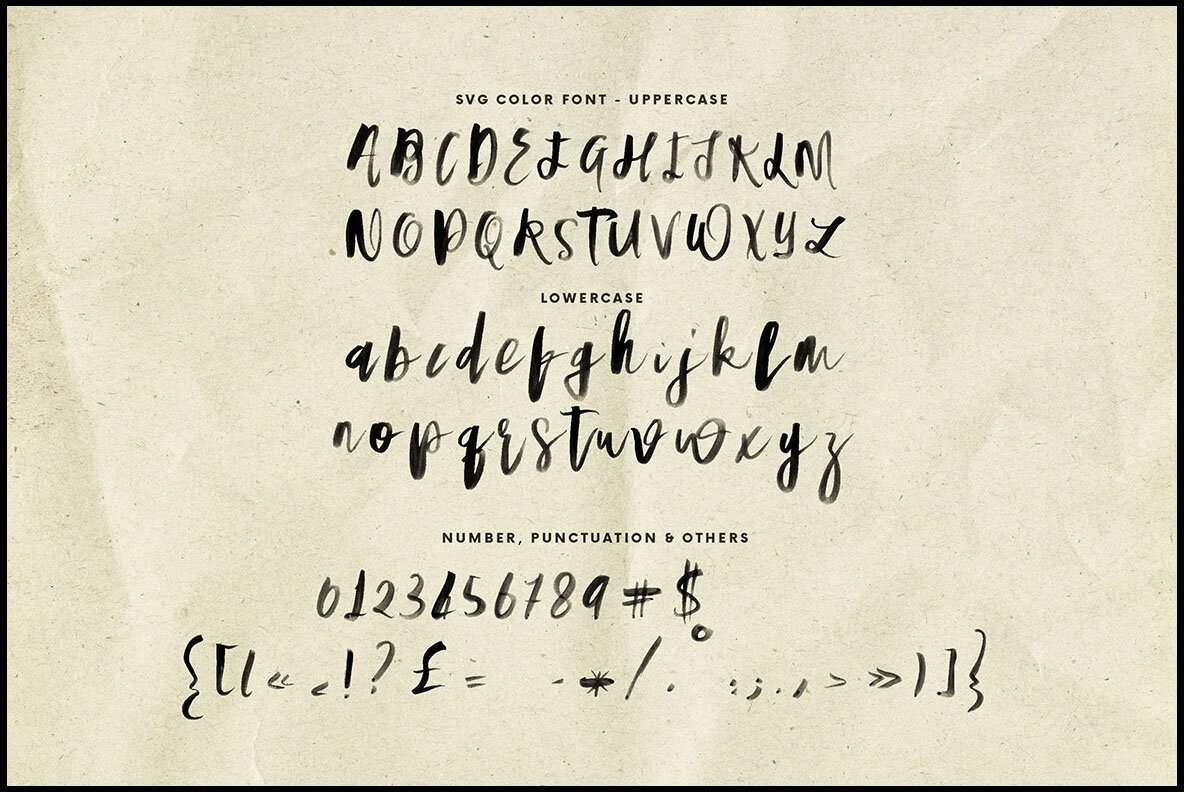 SVG COLOR FONT - UPPERCASE
ABCDEFGHIJKLM
NOPQRSTUVWXYZ
LOWERCASE
abcdefghijklm
nopqrstuvwxyz
NUMBER, PUNCTUATION & OTHERS
0123456789#$
{[(« ‹!?£= -*/. :;.,› »)]}